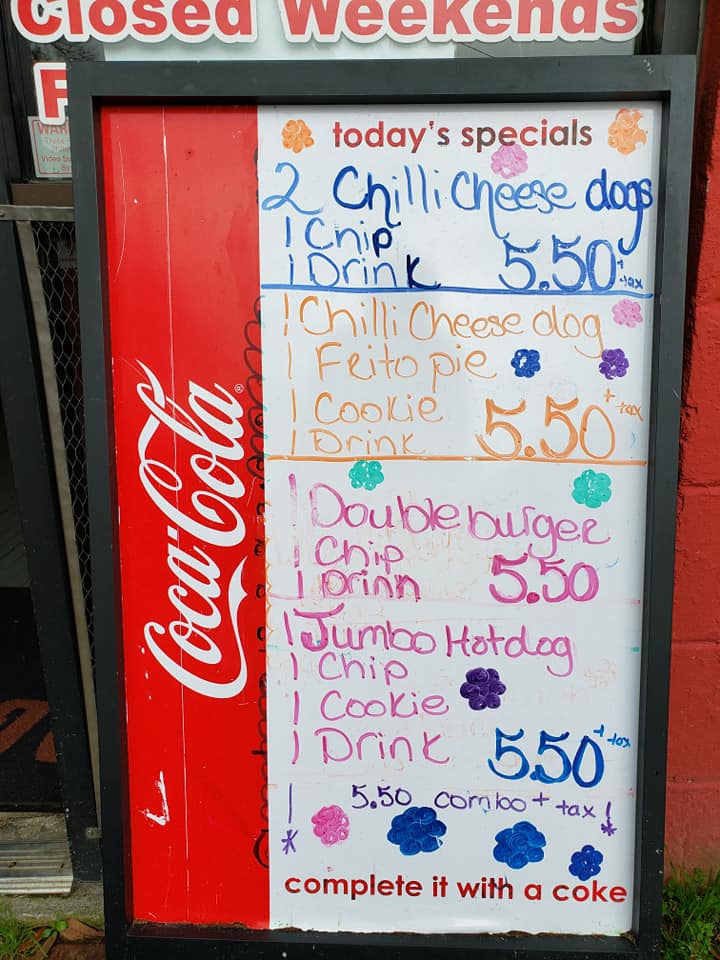 Closed Weekends
F
today's specials
2 Chilli Cheese dogs
1 Chip
1 Drink 5.50 + tax
1 Chilli Cheese dog
1 Frito pie
1 Cookie
1 Drink 5.50 + tax
1 Double burger
1 Chip
1 Drinn 5.50
1 Jumbo Hotdog
1 Chip
1 Cookie
1 Drink 5.50 + tax
! 5.50 combo + tax !
* *
complete it with a coke
Coca-Cola®